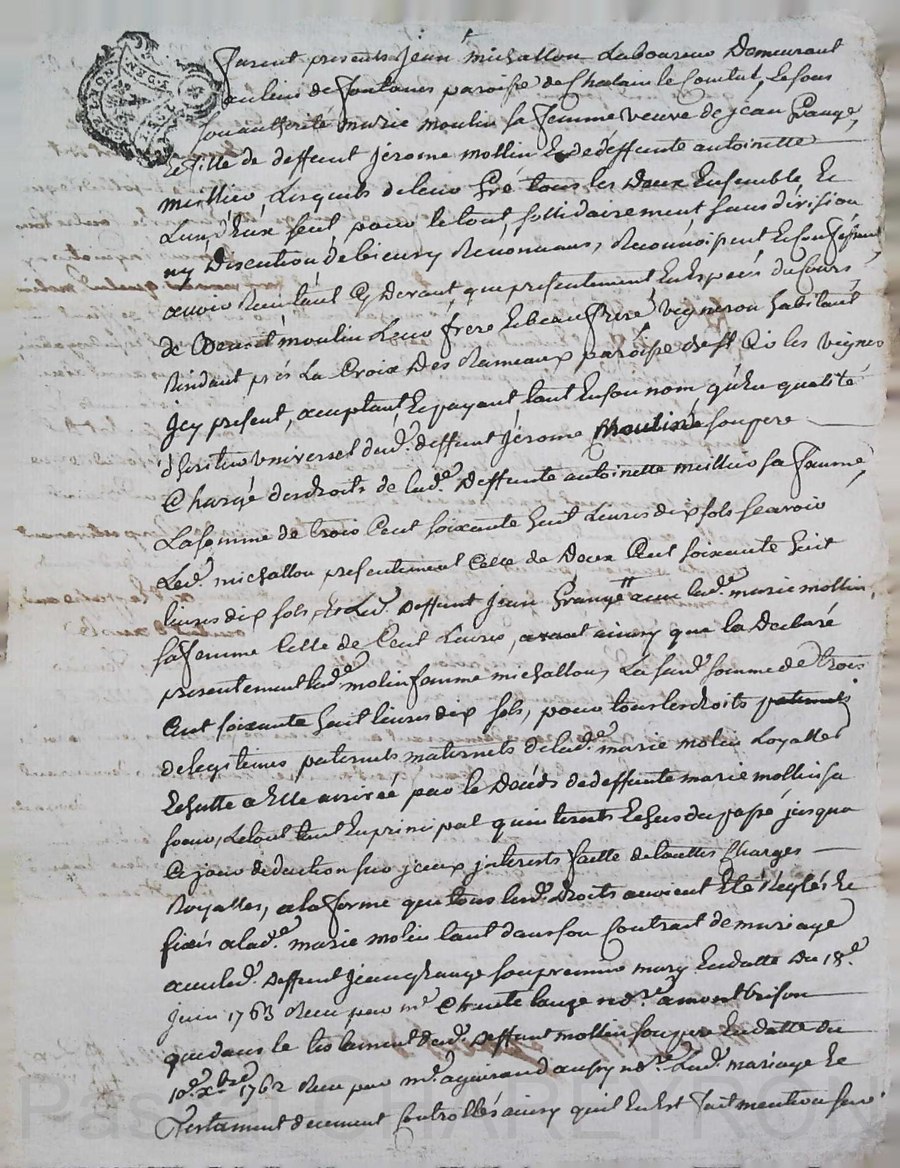 furent presents jean michallon Laboureur Demeurant
au lieu de fontanes paroisse de Chalain le Comtal, Lesous
son authorité marie moulin sa femme veuve de jean Grange,
Et fille de deffunt jerome mollin Et de deffunte antoinette
meillier, Lesquels de leur Gré tous les Deux Ensemble Et
Lun, d'Eux seul pour le tout, sollidairement sans division
ny Discution de biens y Renoncans, Reconnoissent Et Confessent
avoir Reu tant Cy Devant, que presentement En Especes du Cours,
de Benoit moulin Leur frere Et beau frere vigneron habitant
Residant près La Croix Des Rameaux paroisse de st Cir les vignes
Jcy present, acceptant, Et payant tant En son nom, qu'En qualité
d'heritier universel dud. deffunt jerome moulin son pere
Chargé des droits de lad.e Deffunte antoinette meillier sa femme,
La somme de trois Cent soixante huit Livres dix sols scavoir
Led. michallon presentement Celle de Deux Cent soixante huit
livres dix sols, Et Led. Deffunt jean Grange avec lad.e marie mollin,
sa femme Celle de Cent Livres, avant ainsy que la Declaré
presentement lad.e molin femme michallon, La susd. somme de trois
Cent soixante huit livres dix sols, pour tous les droits paternels
de legitimes paternels maternels de lad.e marie molin Loyalle
Echutte a Elle arrivée par le Decés de deffunte marie mollin sa
soeur, Le tout tant En principal qu'interests Echus du passé jusqua
Ce jour deduction sur jceux jnterests faitte de touttes Charges
Royalles, a la forme que tous lesd. Droits avoient Eté Reglés Et
fixés a lad.e marie molin tant dans son Contrat de mariage
avec led. Deffunt jean grange son premier mary En datte Du 18.e
juin 1763 Reu par m.e Chantelauze no.re a montbrison
que dans le testament dud. Deffunt mollin son pere En datte du
10.e x.bre 1762 Reu par m.e aussy no.re Lesd. mariage Et
Testament deuement Controllés ainsy qu'il En Est fait mention sur
Pascal CHAREYRON